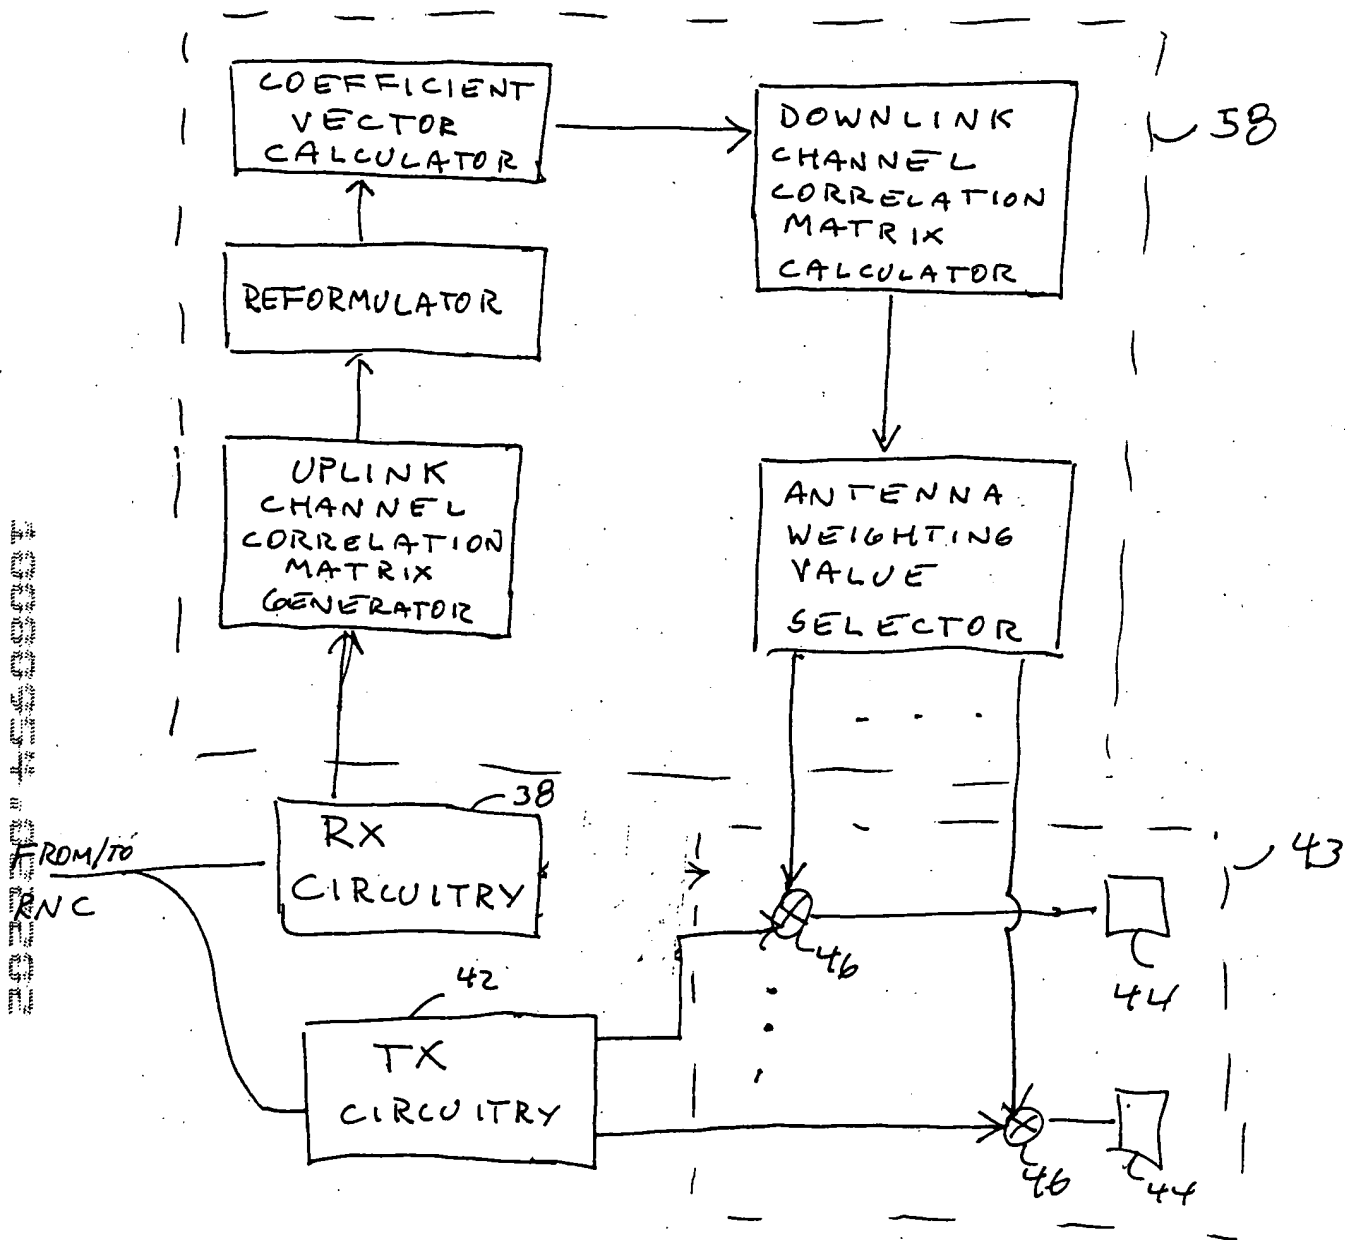 COEFFICIENT
VECTOR
CALCULATOR
DOWNLINK
CHANNEL
CORRELATION
MATRIX
CALCULATOR
58
REFORMULATOR
UPLINK
CHANNEL
CORRELATION
MATRIX
GENERATOR
ANTENNA
WEIGHTING
VALUE
SELECTOR
38
RX
CIRCUITRY
FROM/TO
RNC
43
46
44
42
TX
CIRCUITRY
46
44